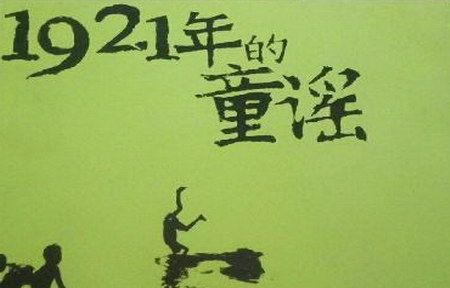 1921年的
童谣